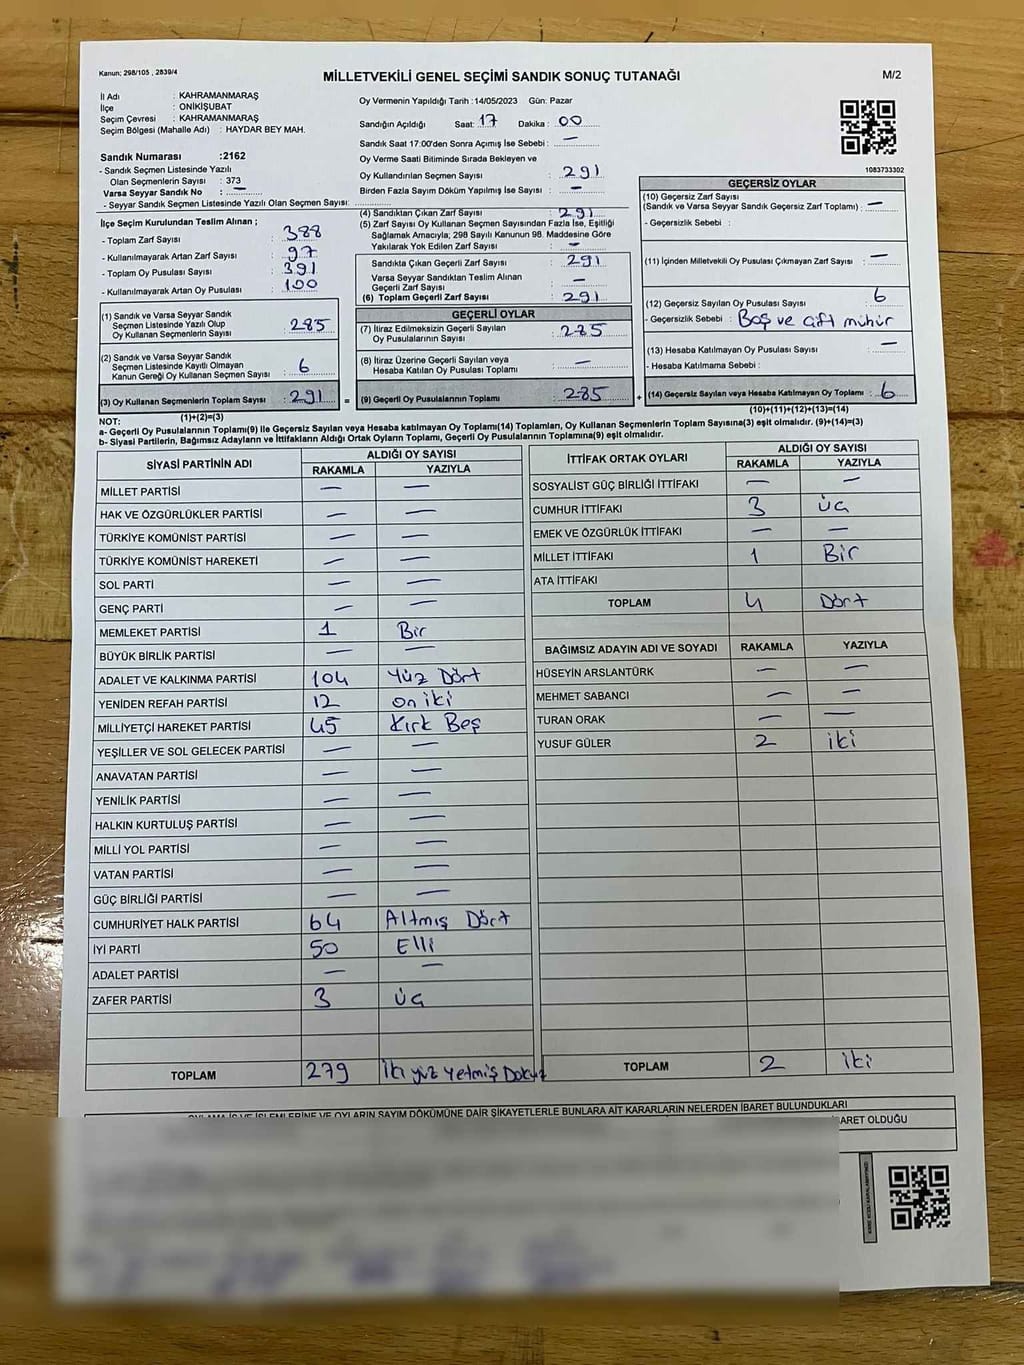 Kanun; 298/105 , 2839/4
MİLLETVEKİLİ GENEL SEÇİMİ SANDIK SONUÇ TUTANAĞI
M/2
İl Adı : KAHRAMANMARAŞ
İlçe : ONİKİŞUBAT
Seçim Çevresi : KAHRAMANMARAŞ
Seçim Bölgesi (Mahalle Adı) : HAYDAR BEY MAH.
Sandık Numarası :2162
- Sandık Seçmen Listesinde Yazılı
Olan Seçmenlerin Sayısı : 373
Varsa Seyyar Sandık No : —
- Seyyar Sandık Seçmen Listesinde Yazılı Olan Seçmen Sayısı:
İlçe Seçim Kurulundan Teslim Alınan ;
- Toplam Zarf Sayısı : 388
- Kullanılmayarak Artan Zarf Sayısı : 97
- Toplam Oy Pusulası Sayısı : 391
- Kullanılmayarak Artan Oy Pusulası : 100
(1) Sandık ve Varsa Seyyar Sandık
Seçmen Listesinde Yazılı Olup
Oy Kullanan Seçmenlerin Sayısı : 285
(2) Sandık ve Varsa Seyyar Sandık
Seçmen Listesinde Kayıtlı Olmayan
Kanun Gereği Oy Kullanan Seçmen Sayısı : 6
(3) Oy Kullanan Seçmenlerin Toplam Sayısı : 291 =
(1)+(2)=(3)
Oy Vermenin Yapıldığı Tarih :14/05/2023 Gün: Pazar
Sandığın Açıldığı Saat: 17 Dakika : 00
Sandık Saat 17:00'den Sonra Açımış İse Sebebi : —
Oy Verme Saati Bitiminde Sırada Bekleyen ve
Oy Kullandırılan Seçmen Sayısı : 291
Birden Fazla Sayım Döküm Yapılmış İse Sayısı : —
(4) Sandıktan Çıkan Zarf Sayısı : 291
(5) Zarf Sayısı Oy Kullanan Seçmen Sayısından Fazla İse, Eşitliği
Sağlamak Amacıyla; 298 Sayılı Kanunun 98. Maddesine Göre
Yakılarak Yok Edilen Zarf Sayısı : —
Sandıkta Çıkan Geçerli Zarf Sayısı : 291
Varsa Seyyar Sandıktan Teslim Alınan
Geçerli Zarf Sayısı : —
(6) Toplam Geçerli Zarf Sayısı : 291
GEÇERLİ OYLAR
(7) İtiraz Edilmeksizin Geçerli Sayılan
Oy Pusulalarının Sayısı : 285
(8) İtiraz Üzerine Geçerli Sayılan veya
Hesaba Katılan Oy Pusulası Toplamı : —
(9) Geçerli Oy Pusulalarının Toplamı : 285 +
1083733302
GEÇERSİZ OYLAR
(10) Geçersiz Zarf Sayısı
(Sandık ve Varsa Seyyar Sandık Geçersiz Zarf Toplamı) : —
- Geçersizlik Sebebi :
(11) İçinden Milletvekili Oy Pusulası Çıkmayan Zarf Sayısı : —
(12) Geçersiz Sayılan Oy Pusulası Sayısı : 6
- Geçersizlik Sebebi : Boş ve çift mühür
(13) Hesaba Katılmayan Oy Pusulası Sayısı : —
- Hesaba Katılmama Sebebi :
(14) Geçersiz Sayılan veya Hesaba Katılmayan Oy Toplamı : 6
(10)+(11)+(12)+(13)=(14)
NOT:
a- Geçerli Oy Pusulalarının Toplamı(9) ile Geçersiz Sayılan veya Hesaba Katılmayan Oy Toplamı(14) Toplamları, Oy Kullanan Seçmenlerin Toplam Sayısına(3) eşit olmalıdır. (9)+(14)=(3)
b- Siyasi Partilerin, Bağımsız Adayların ve İttifakların Aldığı Ortak Oyların Toplamı, Geçerli Oy Pusulalarının Toplamına(9) eşit olmalıdır.
SİYASİ PARTİNİN ADI ALDIĞI OY SAYISI
RAKAMLA YAZIYLA
MİLLET PARTİSİ — —
HAK VE ÖZGÜRLÜKLER PARTİSİ — —
TÜRKİYE KOMÜNİST PARTİSİ — —
TÜRKİYE KOMÜNİST HAREKETİ — —
SOL PARTİ — —
GENÇ PARTİ — —
MEMLEKET PARTİSİ 1 Bir
BÜYÜK BİRLİK PARTİSİ — —
ADALET VE KALKINMA PARTİSİ 104 Yüz Dört
YENİDEN REFAH PARTİSİ 12 on iki
MİLLİYETÇİ HAREKET PARTİSİ 45 Kırk Beş
YEŞİLLER VE SOL GELECEK PARTİSİ — —
ANAVATAN PARTİSİ — —
YENİLİK PARTİSİ — —
HALKIN KURTULUŞ PARTİSİ — —
MİLLİ YOL PARTİSİ — —
VATAN PARTİSİ — —
GÜÇ BİRLİĞİ PARTİSİ — —
CUMHURİYET HALK PARTİSİ 64 Altmış Dört
İYİ PARTİ 50 Elli
ADALET PARTİSİ — —
ZAFER PARTİSİ 3 üç
TOPLAM 279 iki yüz yetmiş Dokuz
İTTİFAK ORTAK OYLARI ALDIĞI OY SAYISI
RAKAMLA YAZIYLA
SOSYALİST GÜÇ BİRLİĞİ İTTİFAKI — —
CUMHUR İTTİFAKI 3 üç
EMEK VE ÖZGÜRLÜK İTTİFAKI — —
MİLLET İTTİFAKI 1 Bir
ATA İTTİFAKI
TOPLAM 4 Dört
BAĞIMSIZ ADAYIN ADI VE SOYADI RAKAMLA YAZIYLA
HÜSEYİN ARSLANTÜRK — —
MEHMET SABANCI — —
TURAN ORAK — —
YUSUF GÜLER 2 iki
TOPLAM 2 iki
OYLAMA İŞ VE İŞLEMLERİNE VE OYLARIN SAYIM DÖKÜMÜNE DAİR ŞİKAYETLERLE BUNLARA AİT KARARLARIN NELERDEN İBARET BULUNDUKLARI
İBARET OLDUĞU